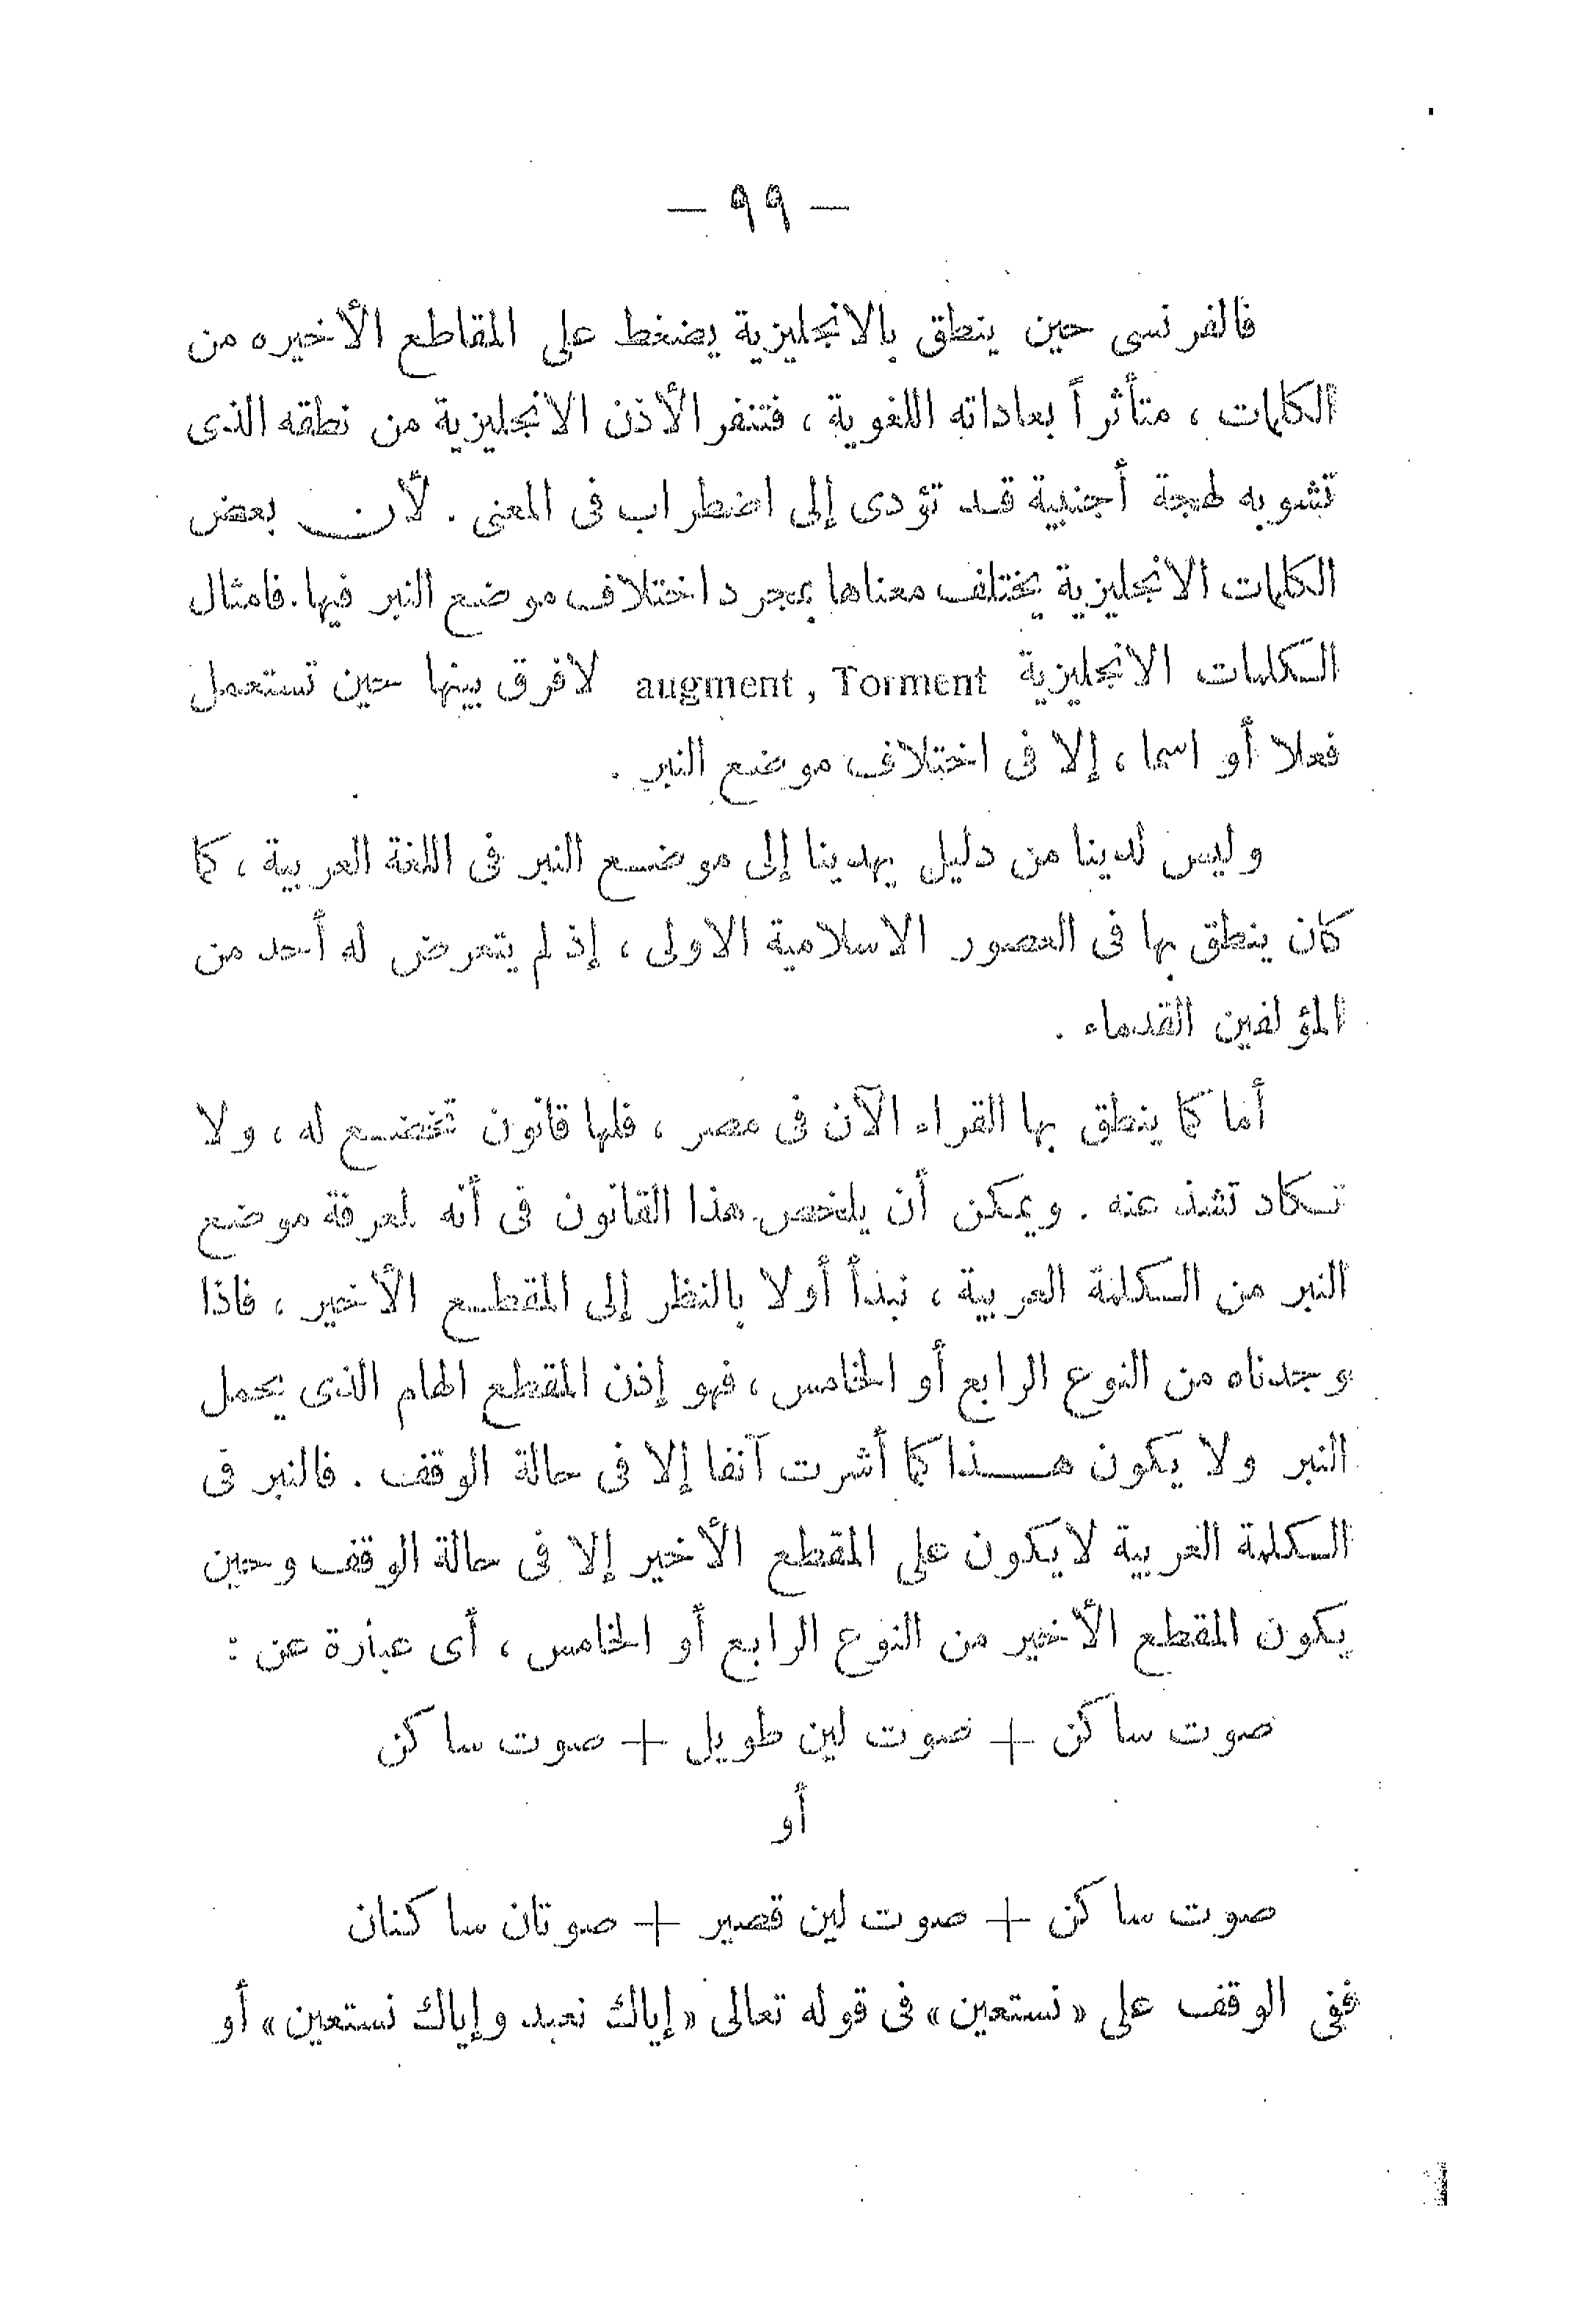 — ٩٩ —
فالفرنسى حين ينطق بالانجليزية يضغط على المقاطع الأخيره من
الكلمات ، متأثراً بعاداته اللغوية ، فتنفر الأذن الانجليزية من نطقه الذى
تشوبه لهجة أجنبية قد تؤدى إلى اضطراب فى المعنى . لأن بعض
الكلمات الانجليزية يختلف معناها بمجرد اختلاف موضع النبر فيها . فامثال
الكلمات الانجليزية augment , Torment لافرق بينها حين تستعمل
فعلا أو اسما ، إلا فى اختلاف موضع النبر .
وليس لدينا من دليل يهدينا إلى موضع النبر فى اللغة العربية ، كما
كان ينطق بها فى العصور الاسلامية الاولى ، إذ لم يتعرض له أحد من
المؤلفين القدماء .
أما كما ينطق بها القراء الآن فى مصر ، فلها قانون تخضع له ، ولا
تكاد تشذ عنه . ويمكن أن يلخص هذا القانون فى أنه لمعرفة موضع
النبر من الكلمة العربية ، نبدأ أولا بالنظر إلى المقطع الأخير ، فاذا
وجدناه من النوع الرابع أو الخامس ، فهو إذن المقطع الهام الذى يحمل
النبر ولا يكون هذا كما أشرت آنفا إلا فى حالة الوقف . فالنبر فى
الكلمة العربية لايكون على المقطع الأخير إلا فى حالة الوقف وحين
يكون المقطع الأخير من النوع الرابع أو الخامس ، أى عبارة عن :
صوت ساكن + صوت لين طويل + صوت ساكن
أو
صوت ساكن + صوت لين قصير + صوتان ساكنان
ففى الوقف على « نستعين » فى قوله تعالى « إياك نعبد وإياك نستعين » أو